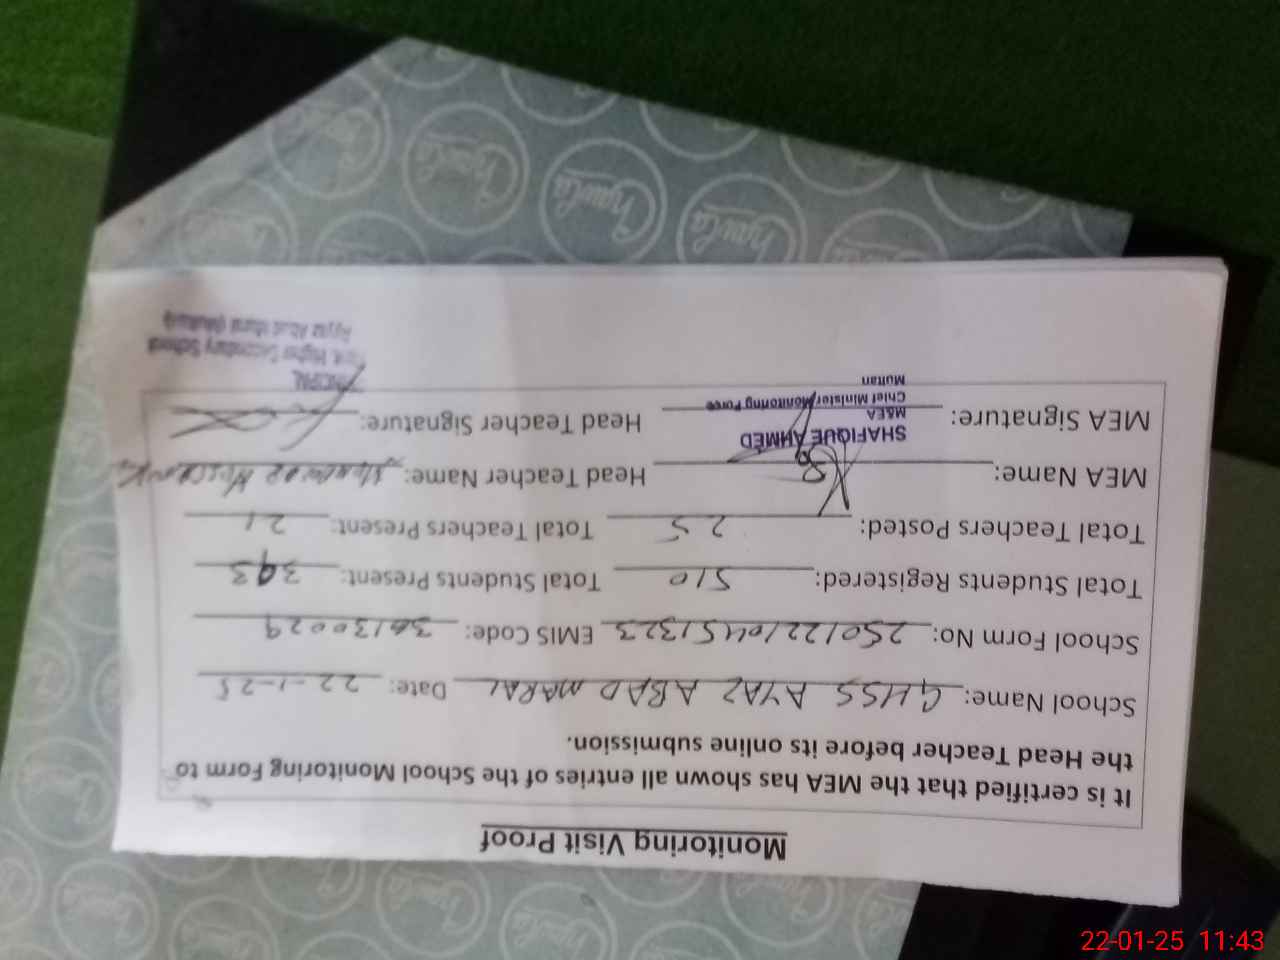 Monitoring Visit Proof
It is certified that the MEA has shown all entries of the School Monitoring Form to
the Head Teacher before its online submission.
School Name: GHSS AYAZ ABAD MARAL Date: 22-1-25
School Form No: 25012210451323 EMIS Code: 36130029
Total Students Registered: 510 Total Students Present: 393
Total Teachers Posted: 25 Total Teachers Present: 21
MEA Name: Head Teacher Name:
SHAFIQUE AHMED
M&EA
MEA Signature: Head Teacher Signature:
Chief Minister Monitoring Force
Multan
Higher Secondary School
Ayyaz Abad Maral (Multan)
Chawla
22-01-25 11:43